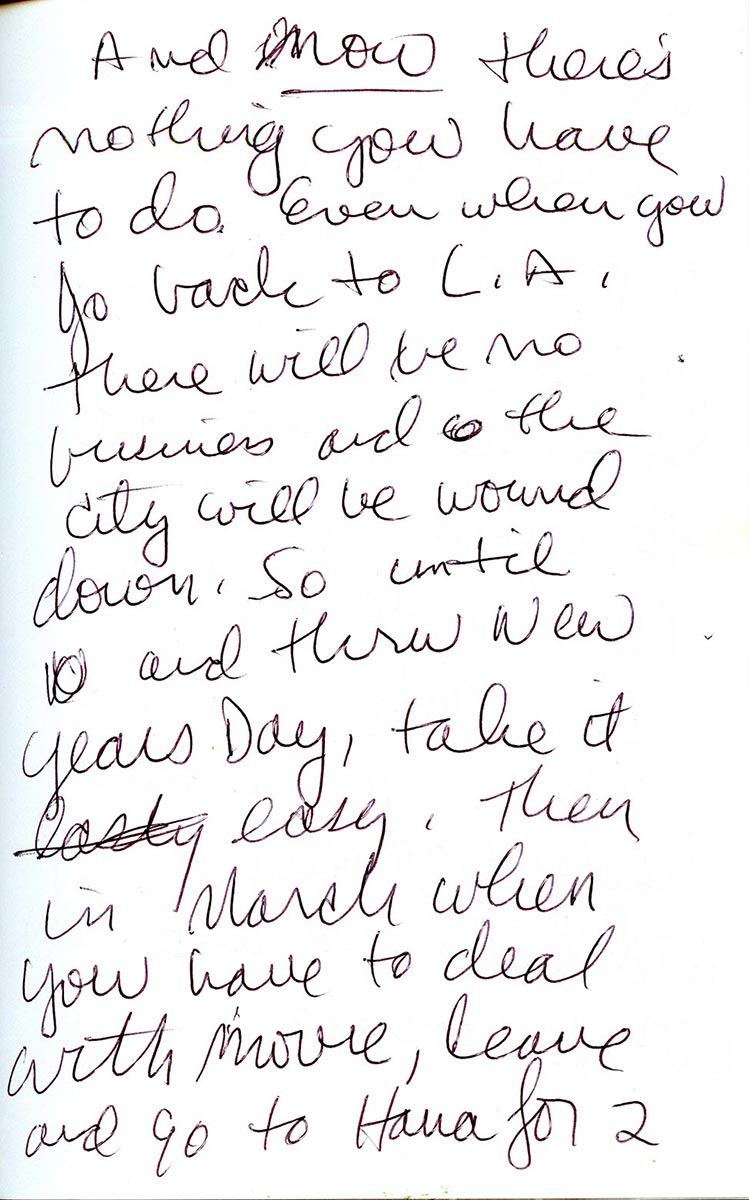 And now there's
nothing you have
to do. Even when you
go back to L.A.
there will be no
business and the
city will be wound
down. So until
and thru New
Years Day, take it
easy. Then
in March when
you have to deal
with movie, leave
and go to Hana for 2